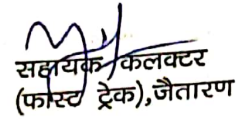 सहायक कलक्टर
(फास्ट ट्रेक),जैतारण